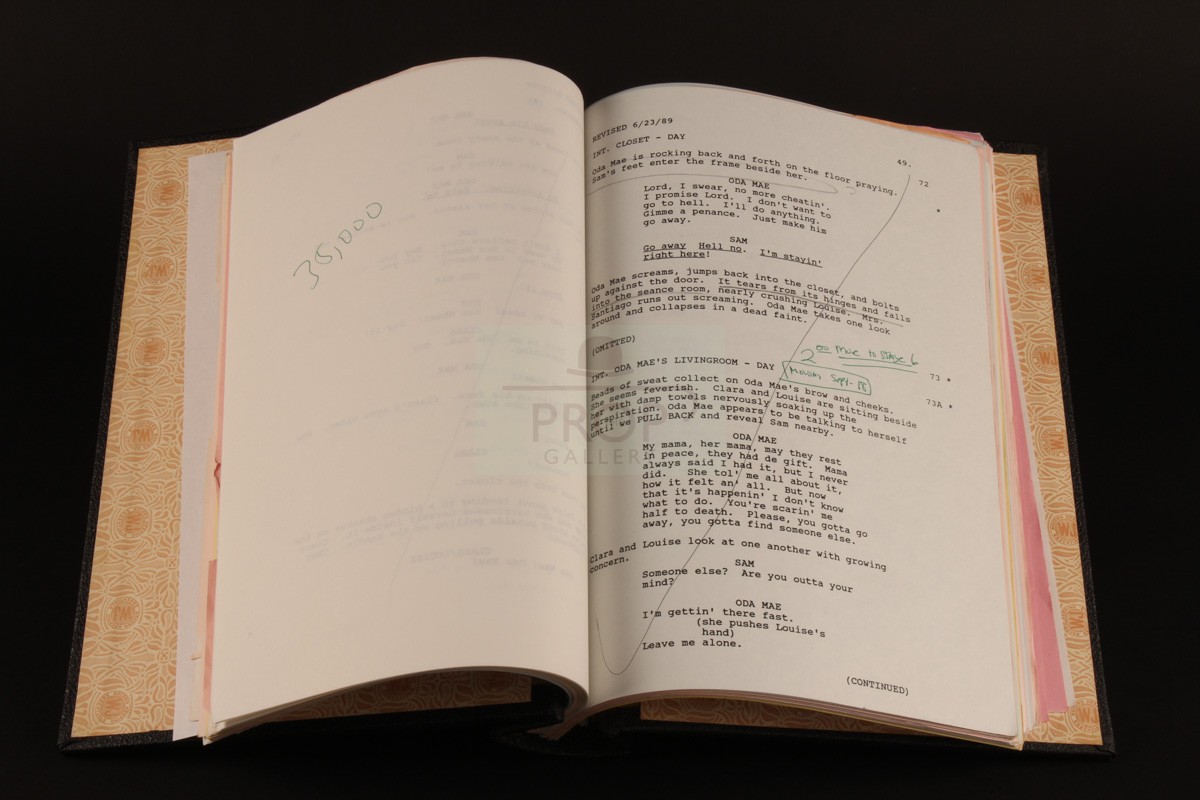 35,000
REVISED 6/23/89
49.
INT. CLOSET - DAY
72
Oda Mae is rocking back and forth on the floor praying.
Sam's feet enter the frame beside her.
ODA MAE
Lord, I swear, no more cheatin'.
I promise Lord. I don't want to
go to hell. I'll do anything. *
Gimme a penance. Just make him
go away.
SAM
Go away Hell no. I'm stayin'
right here!
Oda Mae screams, jumps back into the closet, and bolts
up against the door. It tears from its hinges and falls
into the seance room, nearly crushing Louise. Mrs.
Santiago runs out screaming. Oda Mae takes one look
around and collapses in a dead faint.
(OMITTED)
73 *
2ND MOVE TO STAGE 6
INT. ODA MAE'S LIVINGROOM - DAY
73A *
Beads of sweat collect on Oda Mae's brow and cheeks.
She seems feverish. Clara and Louise are sitting beside
her with damp towels nervously soaking up the
perspiration. Oda Mae appears to be talking to herself
until we PULL BACK and reveal Sam nearby.
ODA MAE
My mama, her mama, may they rest
in peace, they had de gift. Mama
always said I had it, but I never
did. She tol' me all about it,
how it felt an' all. But now
that it's happenin' I don't know
what to do. You're scarin' me
half to death. Please, you gotta go
away, you gotta find someone else.
Clara and Louise look at one another with growing
concern.
SAM
Someone else? Are you outta your
mind?
ODA MAE
I'm gettin' there fast.
(she pushes Louise's
hand)
Leave me alone.
(CONTINUED)
PROP
GALLERY